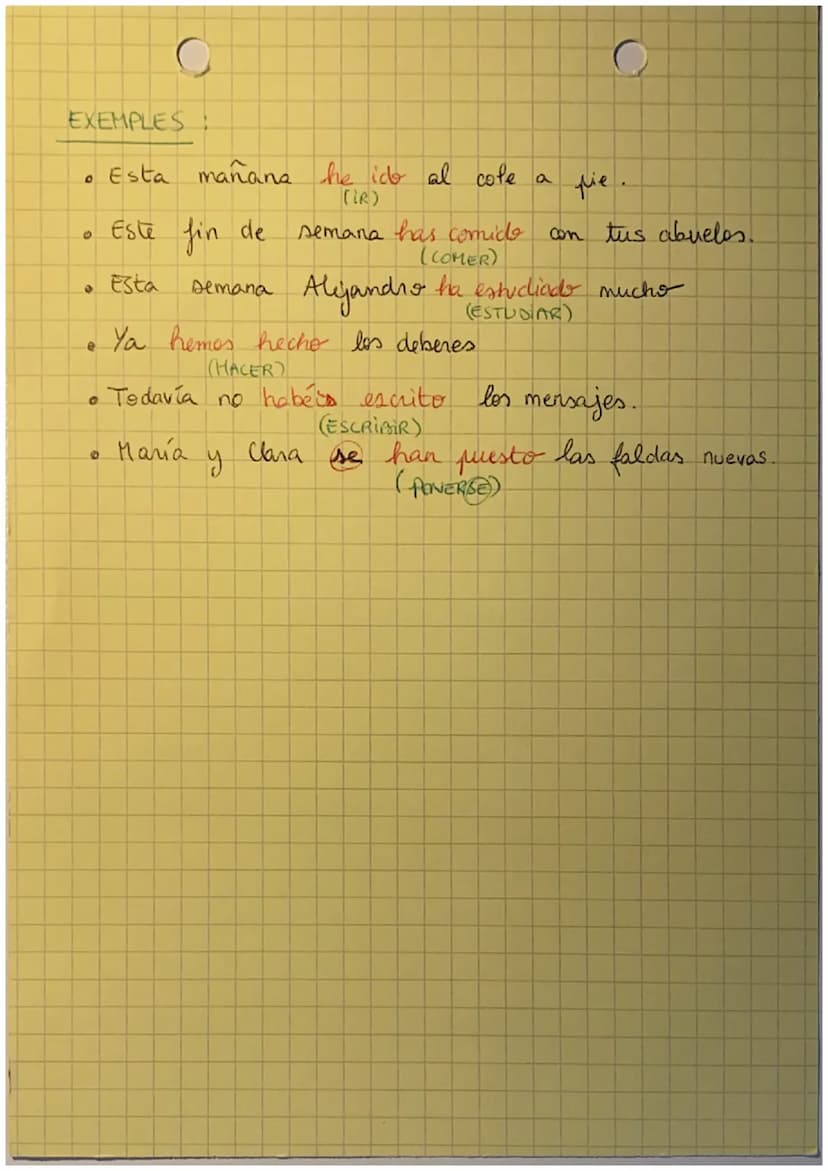 EXEMPLES :
• Esta mañana he ido al cole a pie.
(IR)
• Este fin de semana has comido con tus abuelos.
(COMER)
• Esta semana Alejandro ha estudiado mucho
(ESTUDIAR)
• Ya hemos hecho los deberes
(HACER)
• Todavía no habéis escrito los mensajes.
(ESCRIBIR)
• María y Clara se han puesto las faldas nuevas.
(PONERSE)